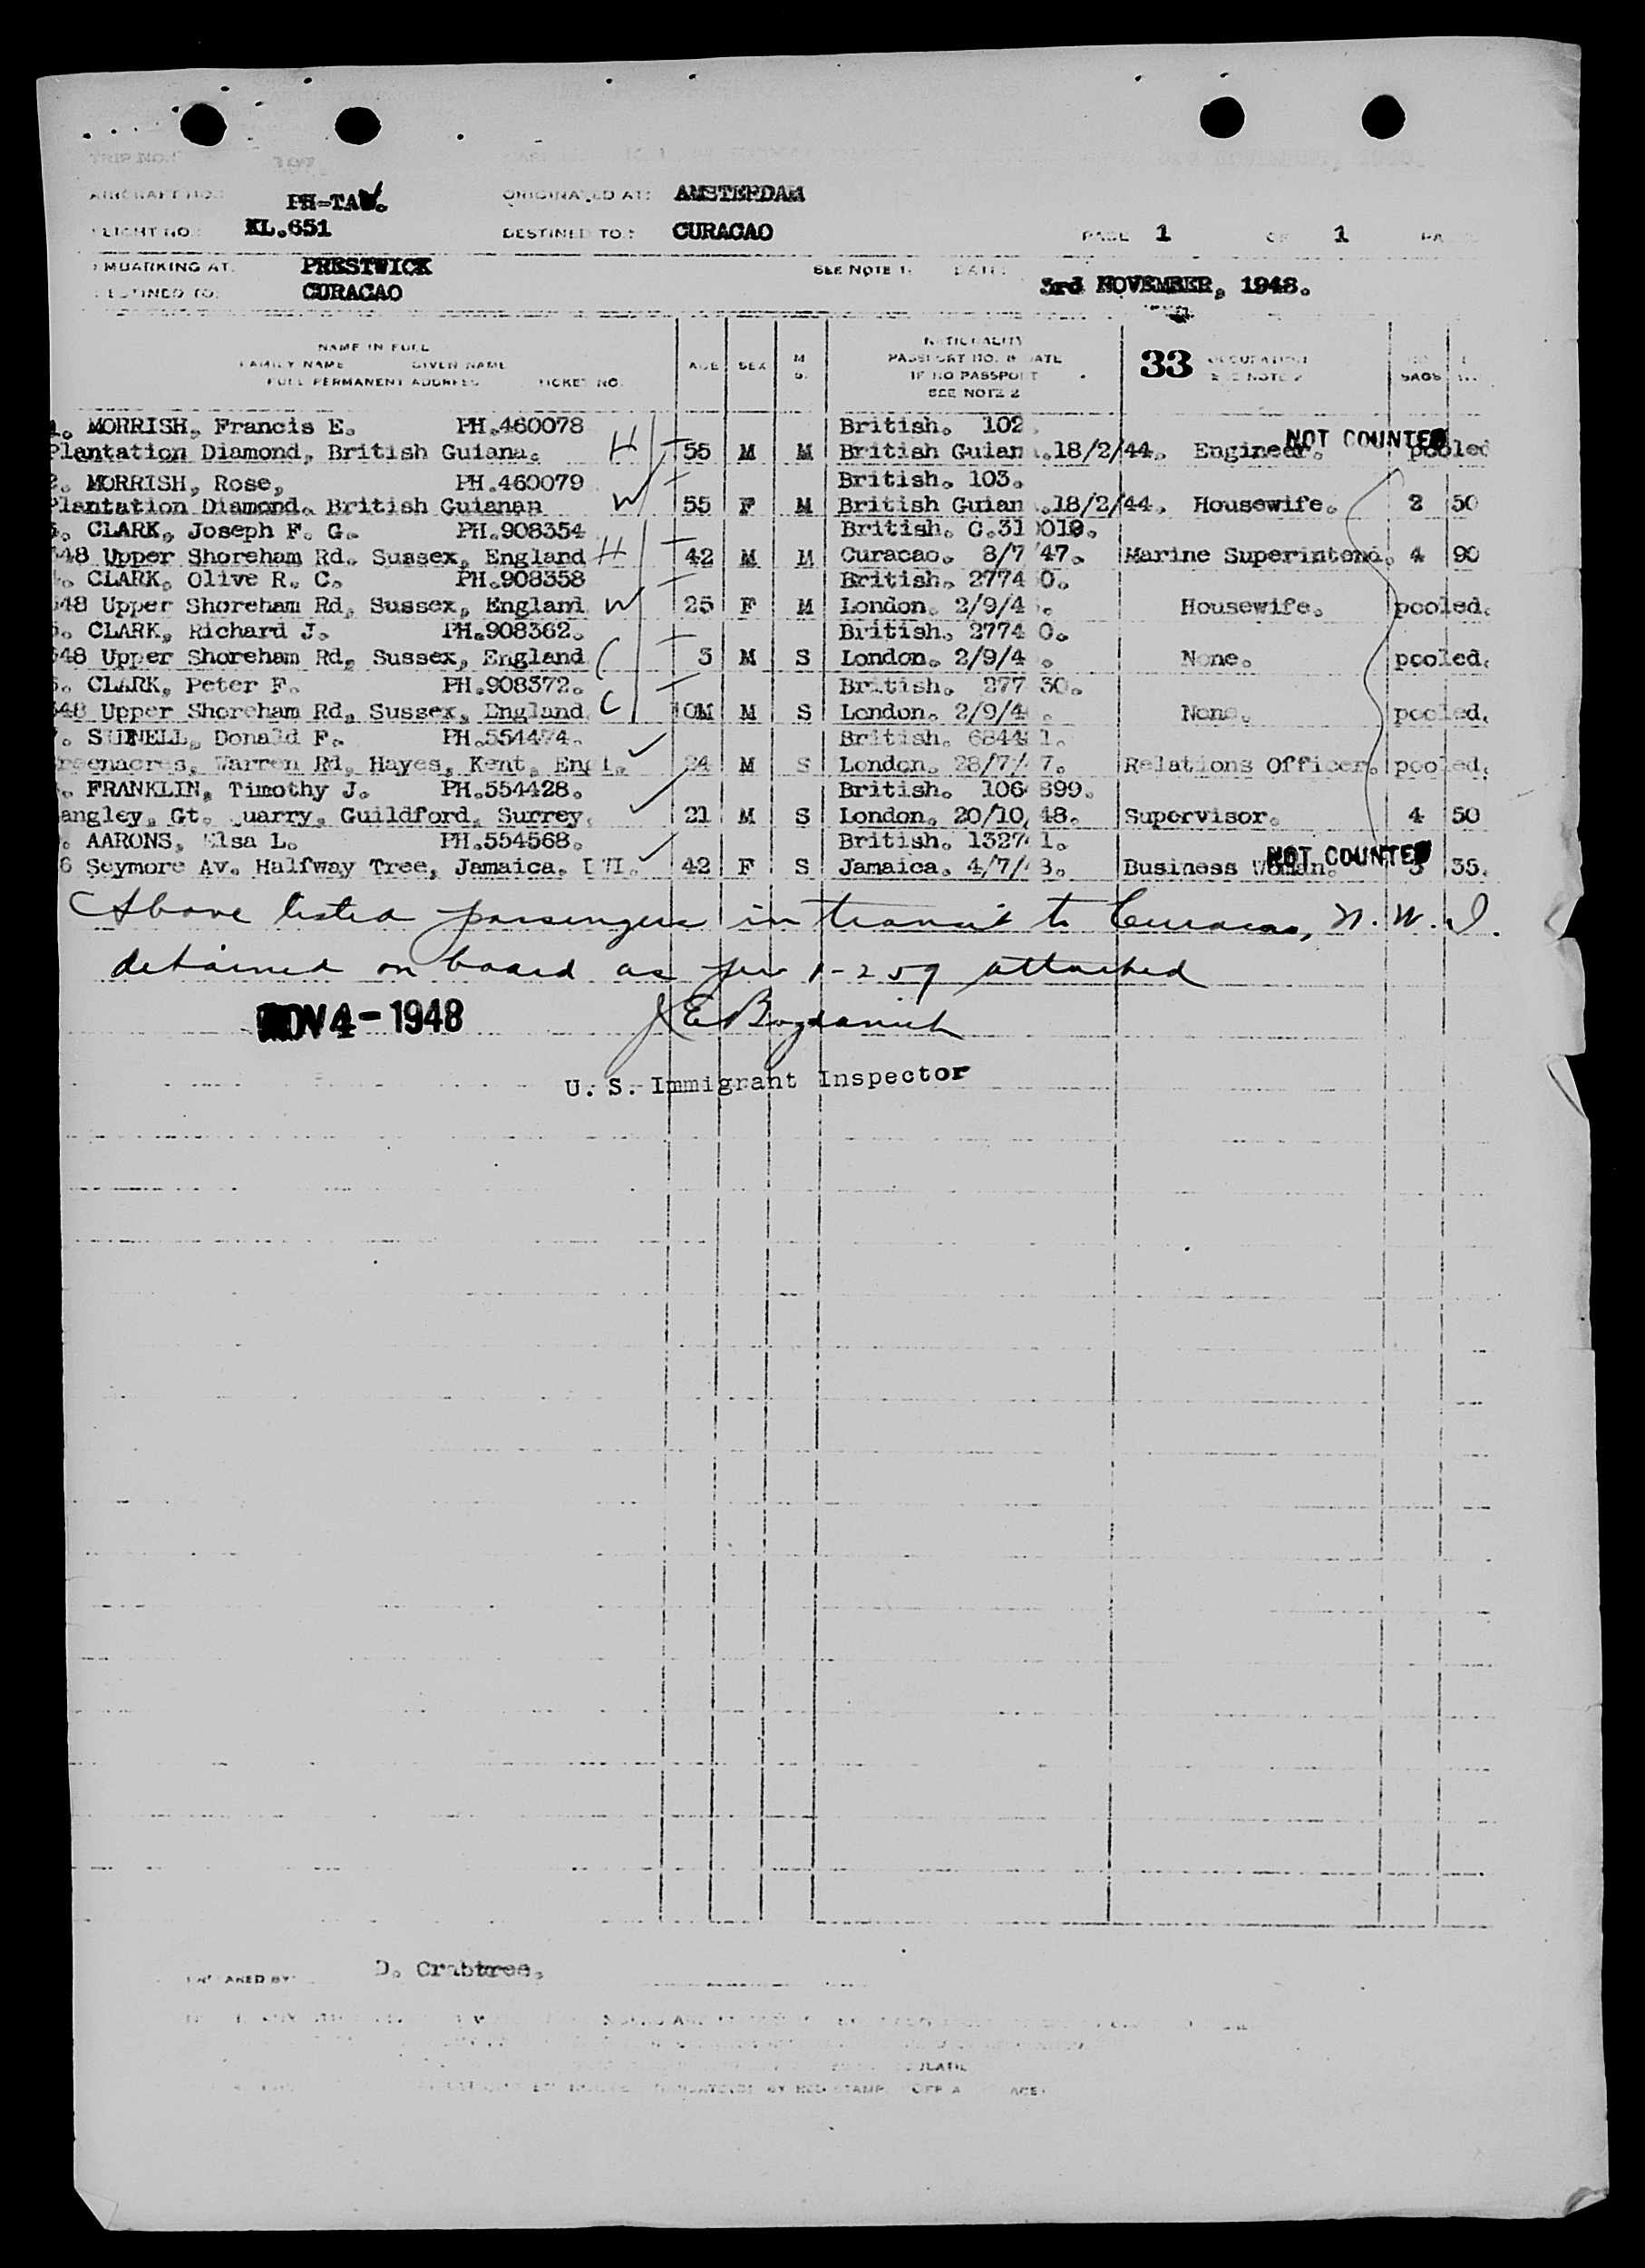 TRIP NO.
AIRCRAFT NO. PH-TAW. ORIGINATED AT: AMSTERDAM
FLIGHT NO. KL.651 DESTINED TO.: CURACAO PAGE 1 OF 1
EMBARKING AT PRESTWICK SEE NOTE 1. DATE:
DESTINED TO: CURACAO 3rd NOVEMBER, 1948.
NAME IN FULL
FAMILY NAME GIVEN NAME
FULL PERMANENT ADDRESS TICKET NO.
AGE SEX M S.
NATIONALITY
PASSPORT NO. & DATE
IF NO PASSPORT
SEE NOTE 2
33 OCCUPATION
SEE NOTE 2
BAGS
MORRISH, Francis E. PH.460078 British. 102.
Plantation Diamond, British Guiana. H 55 M M British Guian .18/2/44. Engineer. NOT COUNTED pooled
2. MORRISH, Rose, PH.460079 British. 103.
Plantation Diamond. British Guianan W 55 F M British Guian .18/2/44. Housewife. 2 50
CLARK, Joseph F. G. PH.908354 British. C.31 0019.
48 Upper Shoreham Rd. Sussex, England H 42 M M Curacao. 8/7 47. Marine Superintend. 4 90
CLARK, Olive R. C. PH.908358 British. 2774 0.
48 Upper Shoreham Rd, Sussex, England W 25 F M London. 2/9/4 . Housewife. pooled.
CLARK, Richard J. PH.908362. British. 2774 0.
48 Upper Shoreham Rd, Sussex, England C 3 M S London. 2/9/4 . None. pooled.
CLARK, Peter F. PH.908372. British. 277 30.
48 Upper Shoreham Rd, Sussex, England. C 10M M S London. 2/9/4 . None. pooled.
Donald F. PH.554474. British. 6844 1.
Greenacres, Warren Rd, Hayes, Kent, Eng 24 M S London. 28/7/ 7. Relations Officer. pooled.
FRANKLIN, Timothy J. PH.554428. British. 106 899.
angley, Gt. Quarry, Guildford, Surrey. 21 M S London. 20/10, 48. Supervisor. 4 50
AARONS, Elsa L. PH.554568. British. 1327 1.
6 Seymore Av. Halfway Tree, Jamaica. BWI. 42 F S Jamaica. 4/7/ 8. Business Woman. NOT COUNTED 3 35.
Above listed passengers in transit to Curacao, N.W.I.
detained on board as per I-259 attached
NOV 4 - 1948 J E Bogdanich
U. S. Immigrant Inspector
PREPARED BY: D. Crabtree.